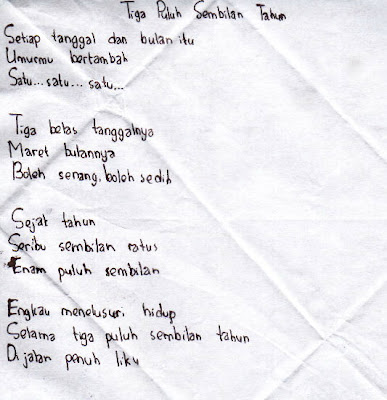 Tiga Puluh Sembilan Tahun
Setiap tanggal dan bulan itu
Umurmu bertambah
Satu... satu... satu...
Tiga belas tanggalnya
Maret bulannya
Boleh senang, boleh sedih
Sejak tahun
Seribu sembilan ratus
Enam puluh sembilan
Engkau menelusuri hidup
Selama tiga puluh sembilan tahun
Di jalan penuh liku